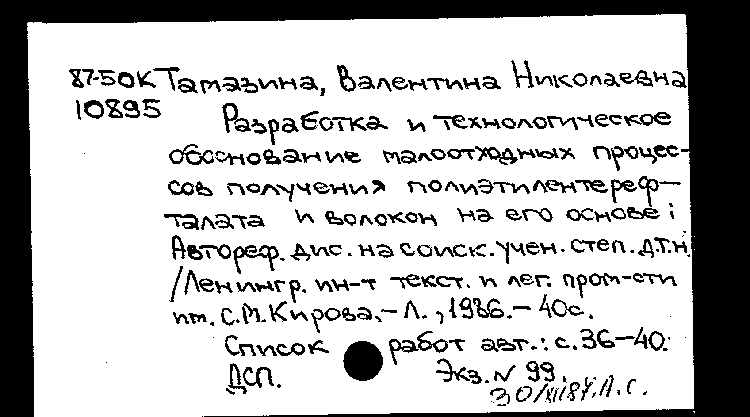 87-50К Тамазина, Валентина Николаевна
10895
Разработка и технологическое
обоснование малоотходных процес-
сов получения полиэтилентереф-
талата и волокон на его основе:
Автореф. дис. на соиск. учен. степ. д.т.н.
/Ленингр. ин-т текст. и лег. пром-сти
им. С.М.Кирова.-Л., 1986.-40с.
Список работ авт.: с.36-40.
ДСП. Экз. N 99.
30/XII87. Л.С.